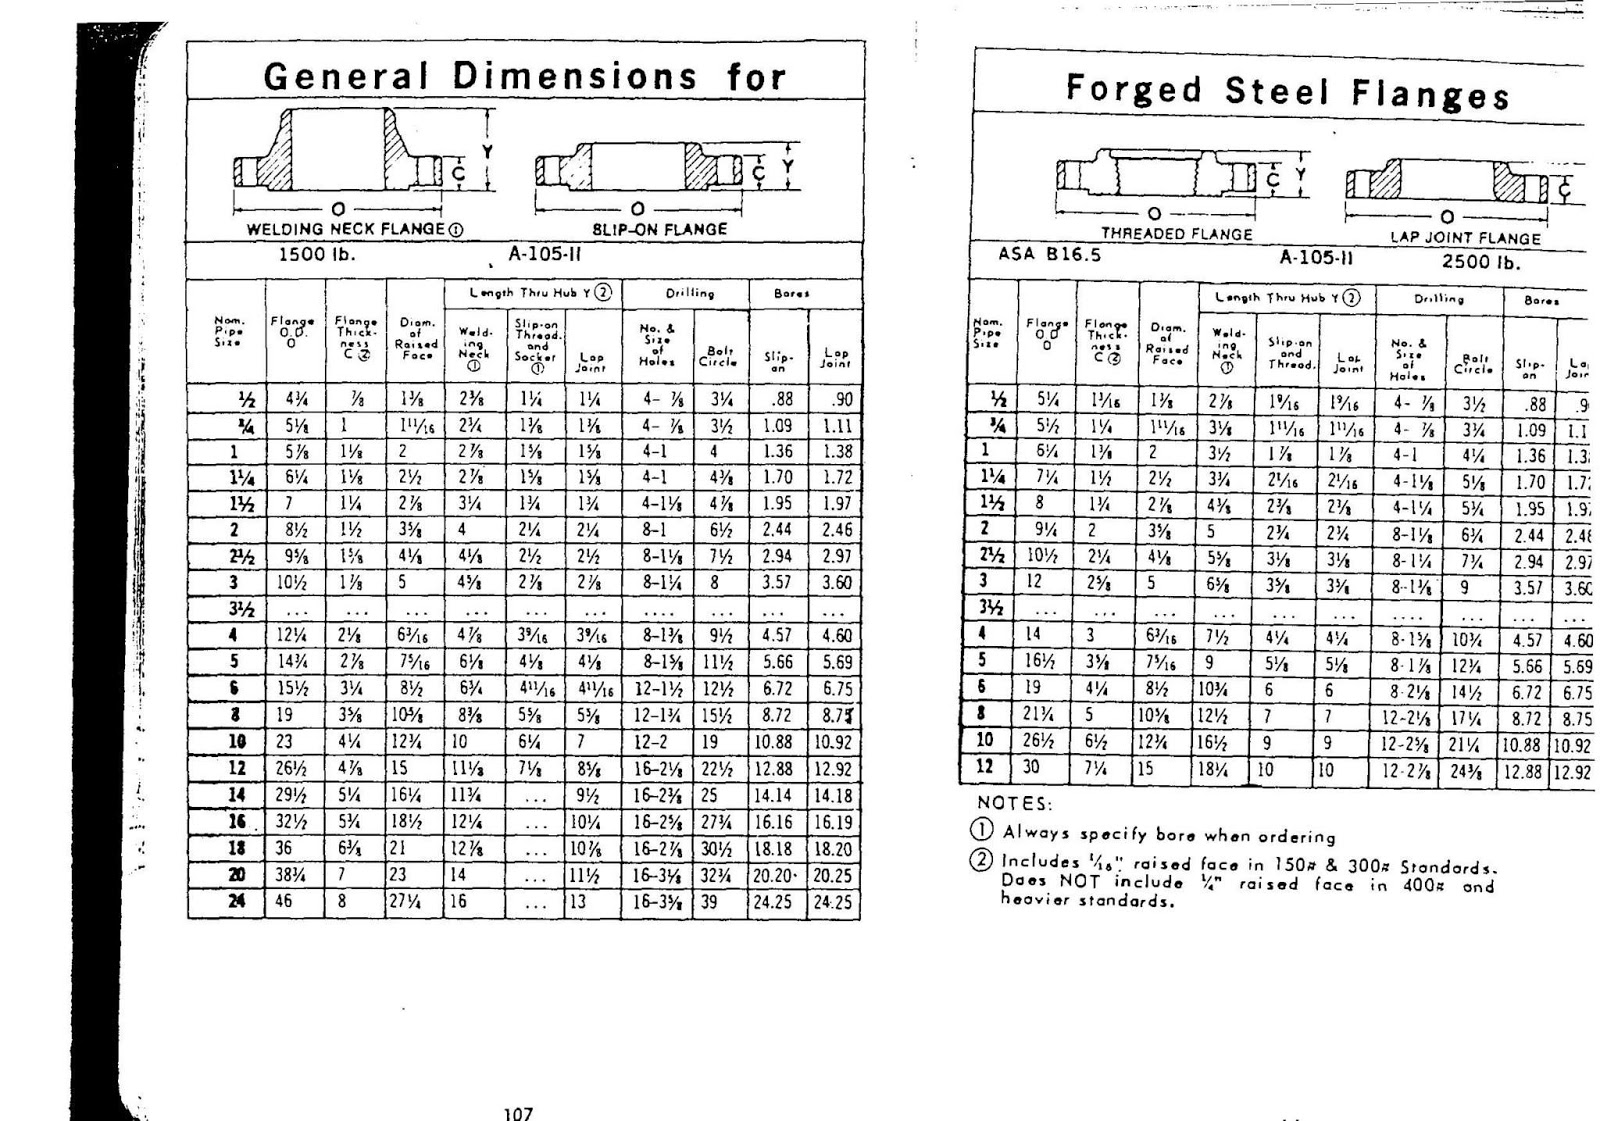 General Dimensions for
Y
C
O
WELDING NECK FLANGE ①
C
Y
O
SLIP-ON FLANGE
1500 lb. A-105-II
Nom. Pipe Size | Flange O.D. O | Flange Thickness C ② | Diam. of Raised Face | Length Thru Hub Y ② | Drilling | Bores
Welding Neck ① | Slip-on Thread. and Socket ① | Lap Joint | No. & Size of Holes | Bolt Circle | Slip-on | Lap Joint
½ 4¾ ⅞ 1⅜ 2⅜ 1¼ 1¼ 4-⅞ 3¼ .88 .90
¾ 5⅛ 1 1¹¹/₁₆ 2¾ 1⅜ 1⅜ 4-⅞ 3½ 1.09 1.11
1 5⅞ 1⅛ 2 2⅞ 1⅝ 1⅝ 4-1 4 1.36 1.38
1¼ 6¼ 1⅛ 2½ 2⅞ 1⅝ 1⅝ 4-1 4⅜ 1.70 1.72
1½ 7 1¼ 2⅞ 3¼ 1¾ 1¾ 4-1⅛ 4⅞ 1.95 1.97
2 8½ 1½ 3⅝ 4 2¼ 2¼ 8-1 6½ 2.44 2.46
2½ 9⅝ 1⅝ 4⅛ 4⅛ 2½ 2½ 8-1⅛ 7½ 2.94 2.97
3 10½ 1⅞ 5 4⅝ 2⅞ 2⅞ 8-1¼ 8 3.57 3.60
3½ ... ... ... ... ... ... .... ... ... ...
4 12¼ 2⅛ 6³/₁₆ 4⅞ 3⁹/₁₆ 3⁹/₁₆ 8-1⅜ 9½ 4.57 4.60
5 14¾ 2⅞ 7⁵/₁₆ 6⅛ 4⅛ 4⅛ 8-1⅝ 11½ 5.66 5.69
6 15½ 3¼ 8½ 6¾ 4¹¹/₁₆ 4¹¹/₁₆ 12-1½ 12½ 6.72 6.75
8 19 3⅝ 10⅝ 8⅜ 5⅝ 5⅝ 12-1¾ 15½ 8.72 8.75
10 23 4¼ 12¾ 10 6¼ 7 12-2 19 10.88 10.92
12 26½ 4⅞ 15 11⅛ 7⅛ 8⅝ 16-2⅛ 22½ 12.88 12.92
14 29½ 5¼ 16¼ 11¾ ... 9½ 16-2⅜ 25 14.14 14.18
16 32½ 5¾ 18½ 12¼ ... 10¼ 16-2⅝ 27¾ 16.16 16.19
18 36 6⅜ 21 12⅞ ... 10⅞ 16-2⅞ 30½ 18.18 18.20
20 38¾ 7 23 14 ... 11½ 16-3⅛ 32¾ 20.20 20.25
24 46 8 27¼ 16 ... 13 16-3⅝ 39 24.25 24.25
107
Forged Steel Flanges
C
Y
O
THREADED FLANGE
C
O
LAP JOINT FLANGE
ASA B16.5 A-105-II 2500 lb.
Nom. Pipe Size | Flange O.D O | Flange Thickness C ② | Diam. of Raised Face | Length Thru Hub Y ② | Drilling | Bores
Welding Neck ① | Slip-on and Thread. | Lap Joint | No. & Size of Holes | Bolt Circle | Slip-on
½ 5¼ 1³/₁₆ 1⅜ 2⅞ 1⁹/₁₆ 1⁹/₁₆ 4-⅞ 3½ .88 .9
¾ 5½ 1¼ 1¹¹/₁₆ 3⅛ 1¹¹/₁₆ 1¹¹/₁₆ 4-⅞ 3¾ 1.09 1.1
1 6¼ 1⅜ 2 3½ 1⅞ 1⅞ 4-1 4¼ 1.36 1.3
1¼ 7¼ 1½ 2½ 3¾ 2¹/₁₆ 2¹/₁₆ 4-1⅛ 5⅛ 1.70 1.7
1½ 8 1¾ 2⅞ 4⅜ 2⅜ 2⅜ 4-1¼ 5¾ 1.95 1.9
2 9¼ 2 3⅝ 5 2¾ 2¾ 8-1⅛ 6¾ 2.44 2.4
2½ 10½ 2¼ 4⅛ 5⅝ 3⅛ 3⅛ 8-1¼ 7¾ 2.94 2.97
3 12 2⅝ 5 6⅝ 3⅝ 3⅝ 8-1⅜ 9 3.57 3.60
3½ ... ... ... ... ... ... .... ... ... ...
4 14 3 6³/₁₆ 7½ 4¼ 4¼ 8-1⅝ 10¾ 4.57 4.60
5 16½ 3⅝ 7⁵/₁₆ 9 5⅛ 5⅛ 8-1⅞ 12¾ 5.66 5.69
6 19 4¼ 8½ 10¾ 6 6 8-2⅛ 14½ 6.72 6.75
8 21¾ 5 10⅝ 12½ 7 7 12-2⅛ 17¼ 8.72 8.75
10 26½ 6½ 12¾ 16½ 9 9 12-2⅝ 21¼ 10.88 10.92
12 30 7¼ 15 18¼ 10 10 12-2⅞ 24⅜ 12.88 12.92
NOTES:
① Always specify bore when ordering
② Includes ¹/₁₆" raised face in 150# & 300# Standards.
Does NOT include ¼" raised face in 400# and
heavier standards.